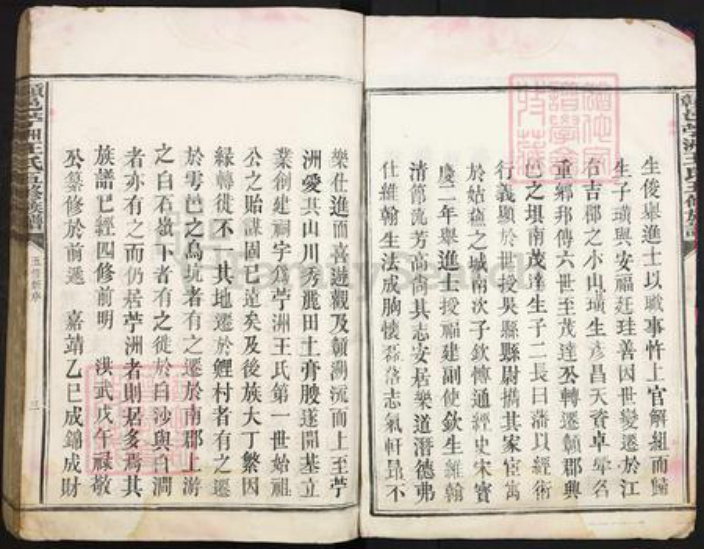 生俊舉進士以職事忤上官解組而歸
生子璜與安福廷珪善因世變遷於江
右吉郡之小山璜生彦昌天資卓犖名
重鄉邦傳六世至茂達公轉遷贛郡興
邑之埧南茂達生子二長曰藩以經術
行義顯於世授吳縣縣尉攜其家宦寓
於姑蘓之城南次子欽博通經史宋寶
慶二年舉進士授福建副使欽生維翰
清節流芳高尚其志安居樂道潛德弗
仕維翰生法成胸懷磊落志氣軒昂不
樂仕進而喜遊觀及贛瀕流而上至苧
洲愛其山川秀麗田土膏腴遂開基立
業創建祠宇爲苧洲王氏第一世始祖
公之貽謀固已遠矣及後族大丁繁因
緣轉徙不一其地遷於鯉村者有之遷
於雩邑之烏坑者有之遷於南郡上游
之白石嶺下者有之徙於白沙與牛澗
者亦有之而仍居苧洲者則居多焉其
族譜已經四修前明 洪武戊午禄敬
公纂修於前遞 嘉靖乙巳成錦成財
贛邑苧洲王氏五修族譜
五修新序
三